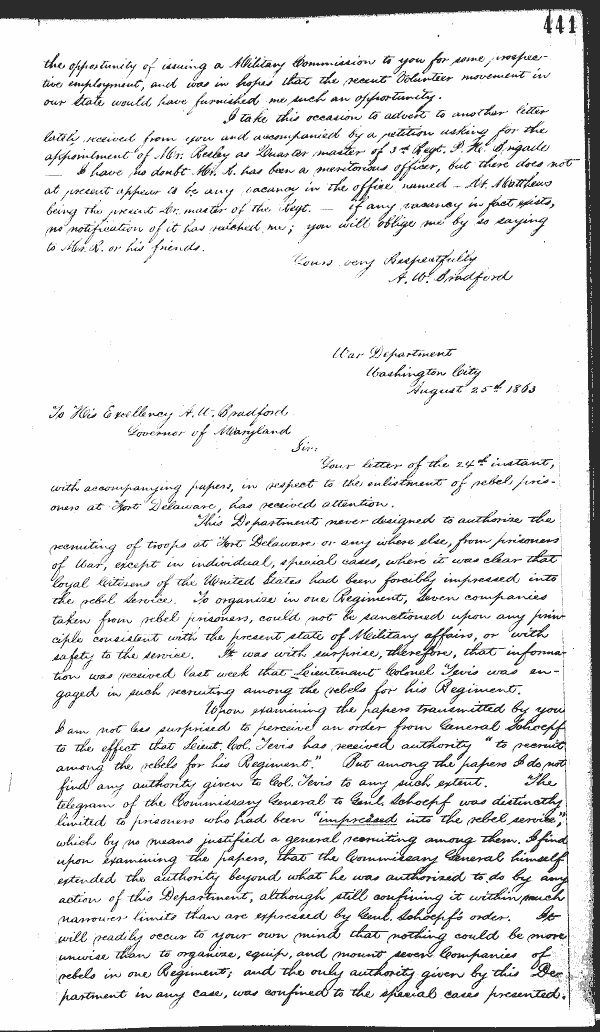 441
the opportunity of issuing a Military Commission to you for some prospec-
tive employment, and was in hopes that the recent Volunteer movement in
our State would have furnished me such an opportunity.
I take this occasion to advert to another letter
lately received from you and accompanied by a petition asking for the
appointment of Mr. Reeley as Quarter master of 3rd Regt. P. H. Brigade
— I have no doubt Mr. R. has been a meritorious officer, but there does not
at present appear to be any vacancy in the office named — Mr. Matthews
being the present Qr. master of the Regt. — if any vacancy in fact exists,
no notification of it has reached me; you will oblige me by so saying
to Mr. R. or his friends.
Yours very Respectfully
A. W. Bradford
War Department
Washington City
August 25th 1863
To His Excellency A. W. Bradford
Governor of Maryland
Sir:
Your letter of the 24th instant,
with accompanying papers, in respect to the enlistment of rebel pris-
oners at Fort Delaware, has received attention.
This Department never designed to authorize the
recruiting of troops at Fort Delaware or any where else, from prisoners
of War, except in individual, special cases, where it was clear that
loyal Citizens of the United States had been forcibly impressed into
the rebel service. To organize in one Regiment, Seven companies
taken from rebel prisoners, could not be sanctioned upon any prin-
ciple consistent with the present state of Military affairs, or with
safety to the service. It was with surprise, therefore, that informa-
tion was received last week that Lieutenant Colonel Tevis was en-
gaged in such recruiting among the rebels for his Regiment.
Upon examining the papers transmitted by you
I am not less surprised to perceive an order from General Schoepf
to the effect that Lieut. Col. Tevis has received authority "to recruit
among the rebels for his Regiment." But among the papers I do not
find any authority given to Col. Tevis to any such extent. The
telegram of the Commissary General to Genl. Schoepf was distinctly
limited to prisoners who had been "impressed into the rebel service,"
which by no means justified a general recruiting among them. I find
upon examining the papers, that the Commissary General himself
extended the authority beyond what he was authorized to do by any
action of this Department, although still confining it within much
narrower limits than are expressed by Genl. Schoepf's order. It
will readily occur to your own mind that nothing could be more
unwise than to organize, equip, and mount seven Companies of
rebels in one Regiment; and the only authority given by this De-
partment in any case, was confined to the special cases presented.